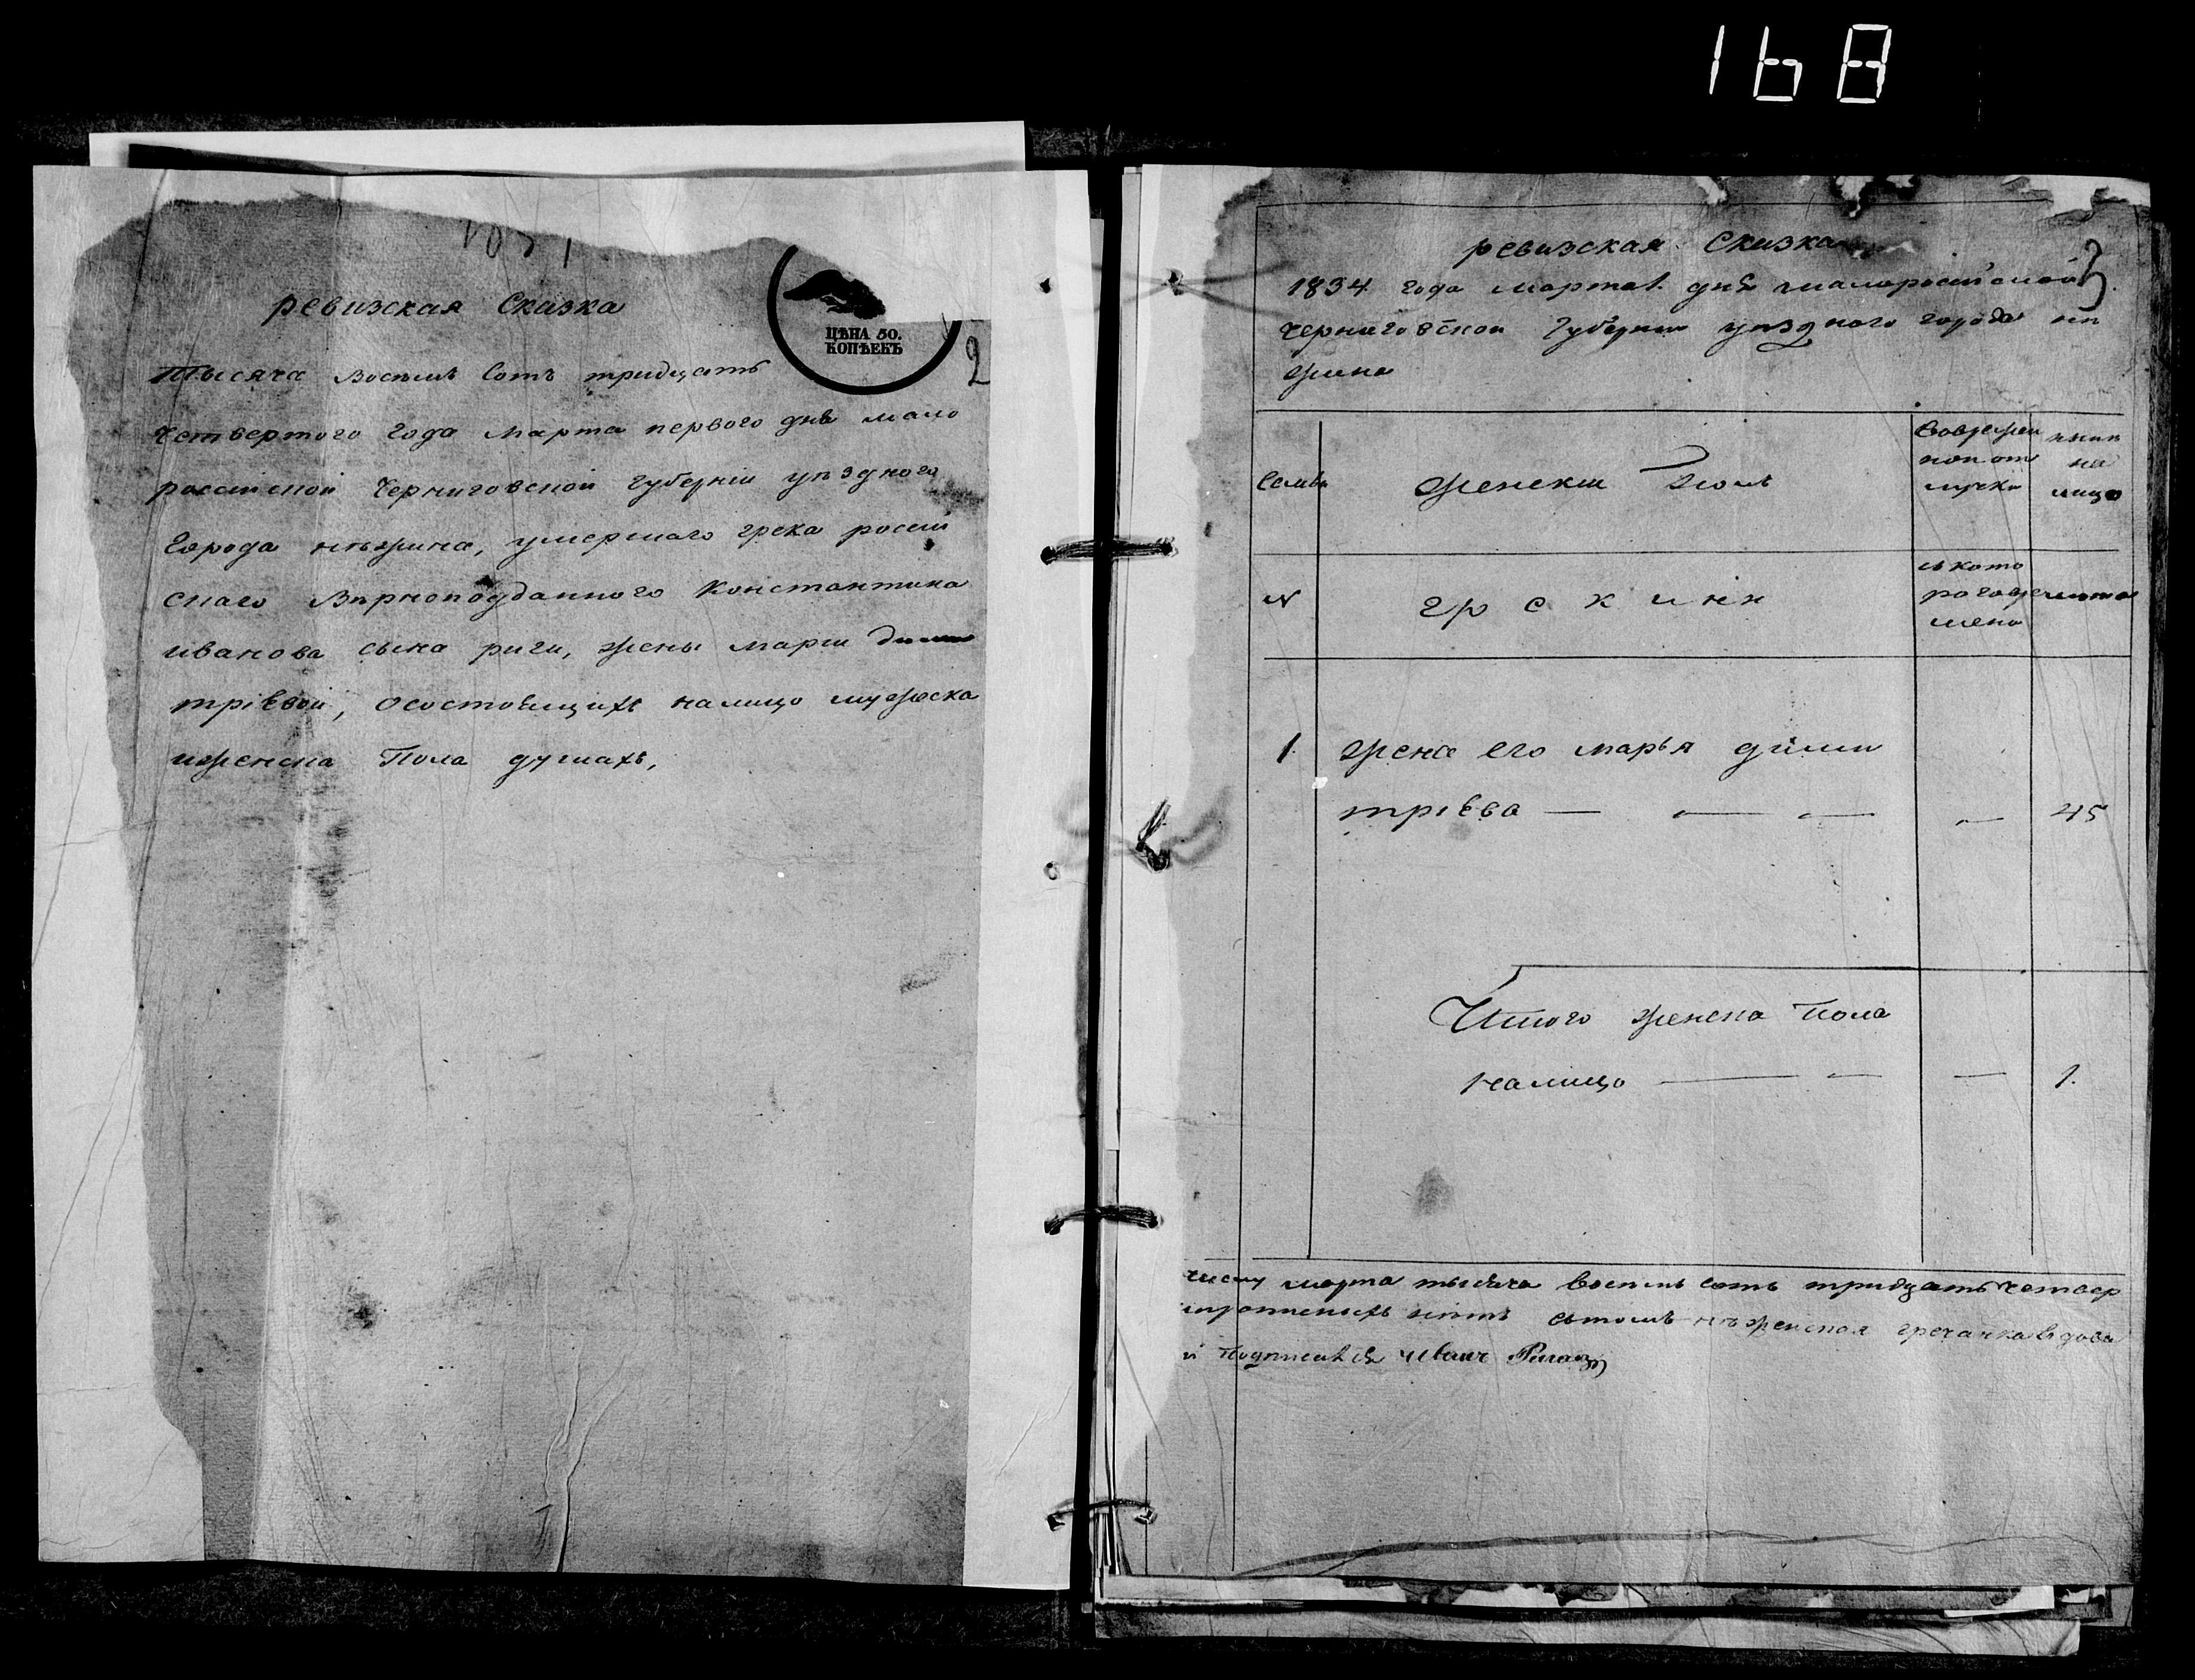 168
ревизская Сказка
ЦѢНА 50.
КОПѢЕКЪ
2
Тысяча восемь Сотъ тридцать
четвертого года марта первого дня мало
россійской Черниговской губерніи уѣздного
Города нѣжина, умершаго грека россій
скаго вѣрноподданного Константина
иванова сына риги, жены маріи дими
тріевой, осостоящихъ налицо мужеска
иженска Пола душахъ,
ревизская Сказка
3
1834 года марта 1. дня малоросійской
черниговской Губерніи уѣздного города нѣ
жина
Семьи
женски Полъ
вовремен
ной от
лучки
нынѣ
на
лицо
N
гр е к и нѣ
съкото
рого вре
мени
лѣта
1. жена его марья дими
тріева — — — — 45
Итого женска Пола
налицо — — — 1.
числу марта тысяча восемь сотъ тридцать четвер
нѣтъ вътомъ нѣженская гречанка вдова
й Подписался Иванъ